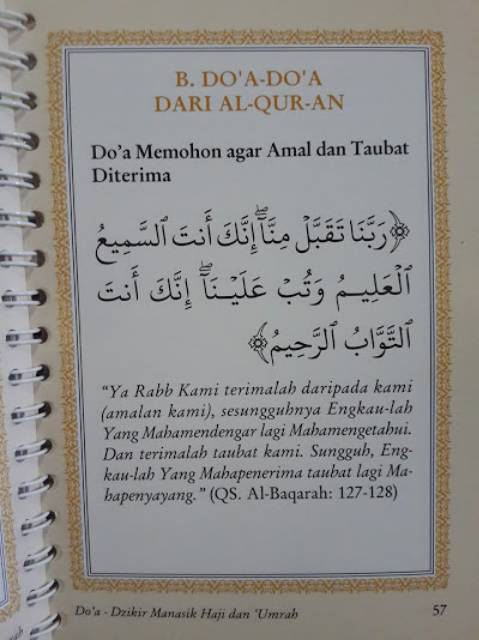 B. DO'A-DO'A
DARI AL-QUR-AN
Do'a Memohon agar Amal dan Taubat
Diterima
﴿رَبَّنَا تَقَبَّلْ مِنَّآ ۖ إِنَّكَ أَنتَ ٱلسَّمِيعُ
ٱلْعَلِيـمُ وَتُبْ عَلَيْـنَآ ۖ إِنَّكَ أَنتَ
ٱلتَّوَّابُ ٱلرَّحِيمُ﴾
“Ya Rabb Kami terimalah daripada kami
(amalan kami), sesungguhnya Engkau-lah
Yang Mahamendengar lagi Mahamengetahui.
Dan terimalah taubat kami. Sungguh, Eng-
kau-lah Yang Mahapenerima taubat lagi Ma-
hapenyayang.” (QS. Al-Baqarah: 127-128)
Do'a - Dzikir Manasik Haji dan 'Umrah 57